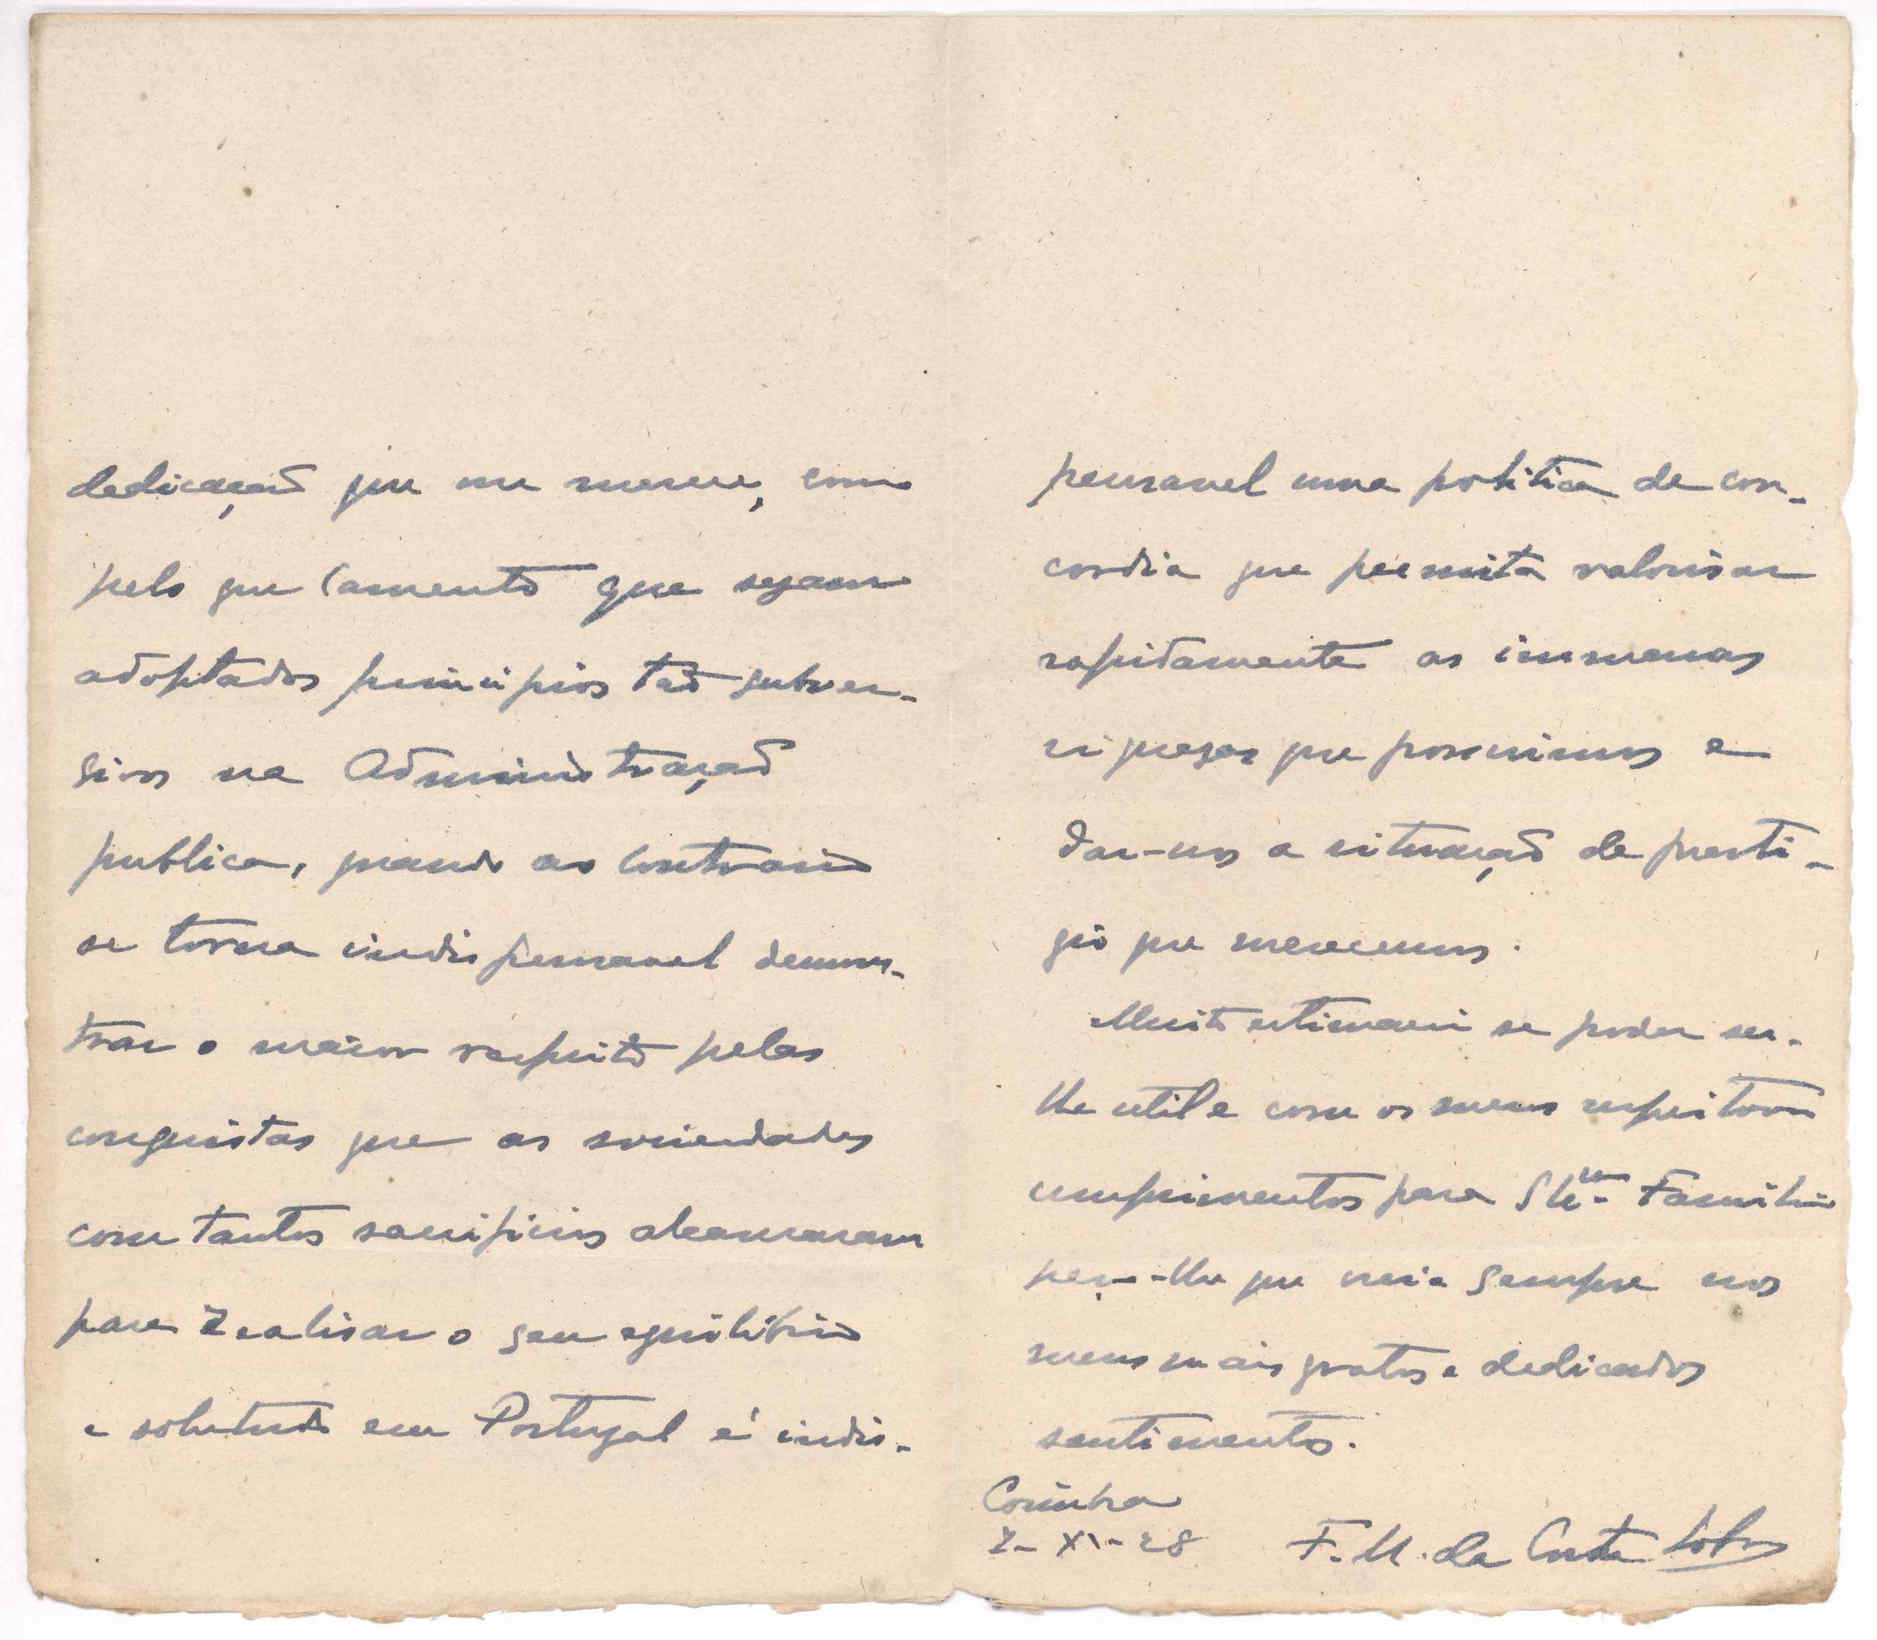 dedicação que me merece, como
pelo que lamento que sejam
adoptados principios tão subver-
sivos na Administração
publica, quando ao contrario
se torna indispensavel demons-
trar o maior respeito pelas
conquistas que as sociedades
com tantos sacrificios alcançaram
para realisar o seu equilibrio
e sobretudo em Portugal é indis-
pensavel uma politica de con-
cordia que permita valorisar
rapidamente as immensas
riquezas que possuimos e
dar-nos a situação de presti-
gio que merecemos.
Muito estimarei se poder ser-
lhe util e com os meus respeitosos
cumprimentos para Familia
peço-lhe que creia sempre nos
meus mais gratos e dedicados
sentimentos.
Coimbra
2-XI-28
F. M. da Costa Lobo